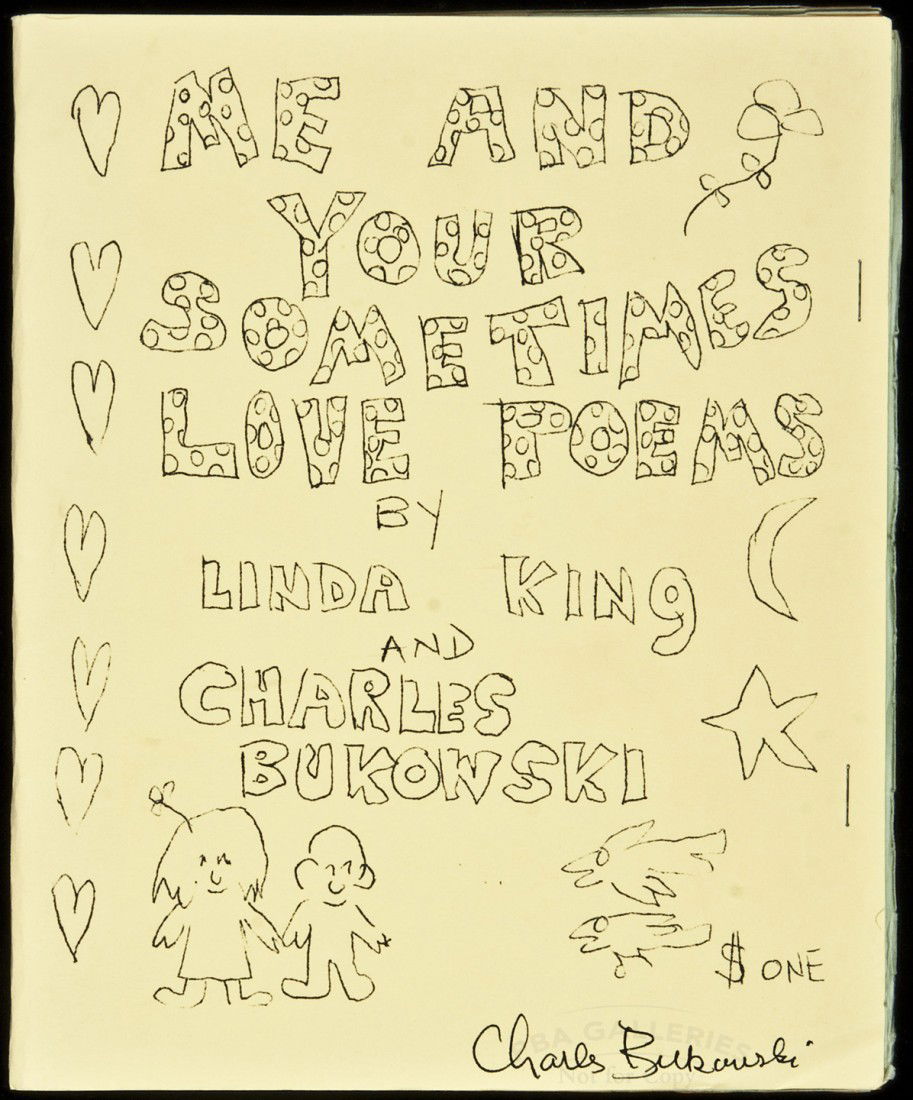 ME AND
YOUR
SOMETIMES
LOVE POEMS
BY
LINDA KING
AND
CHARLES
BUKOWSKI
$ ONE
Charles Bukowski
PBA GALLERIES
Not for Copy